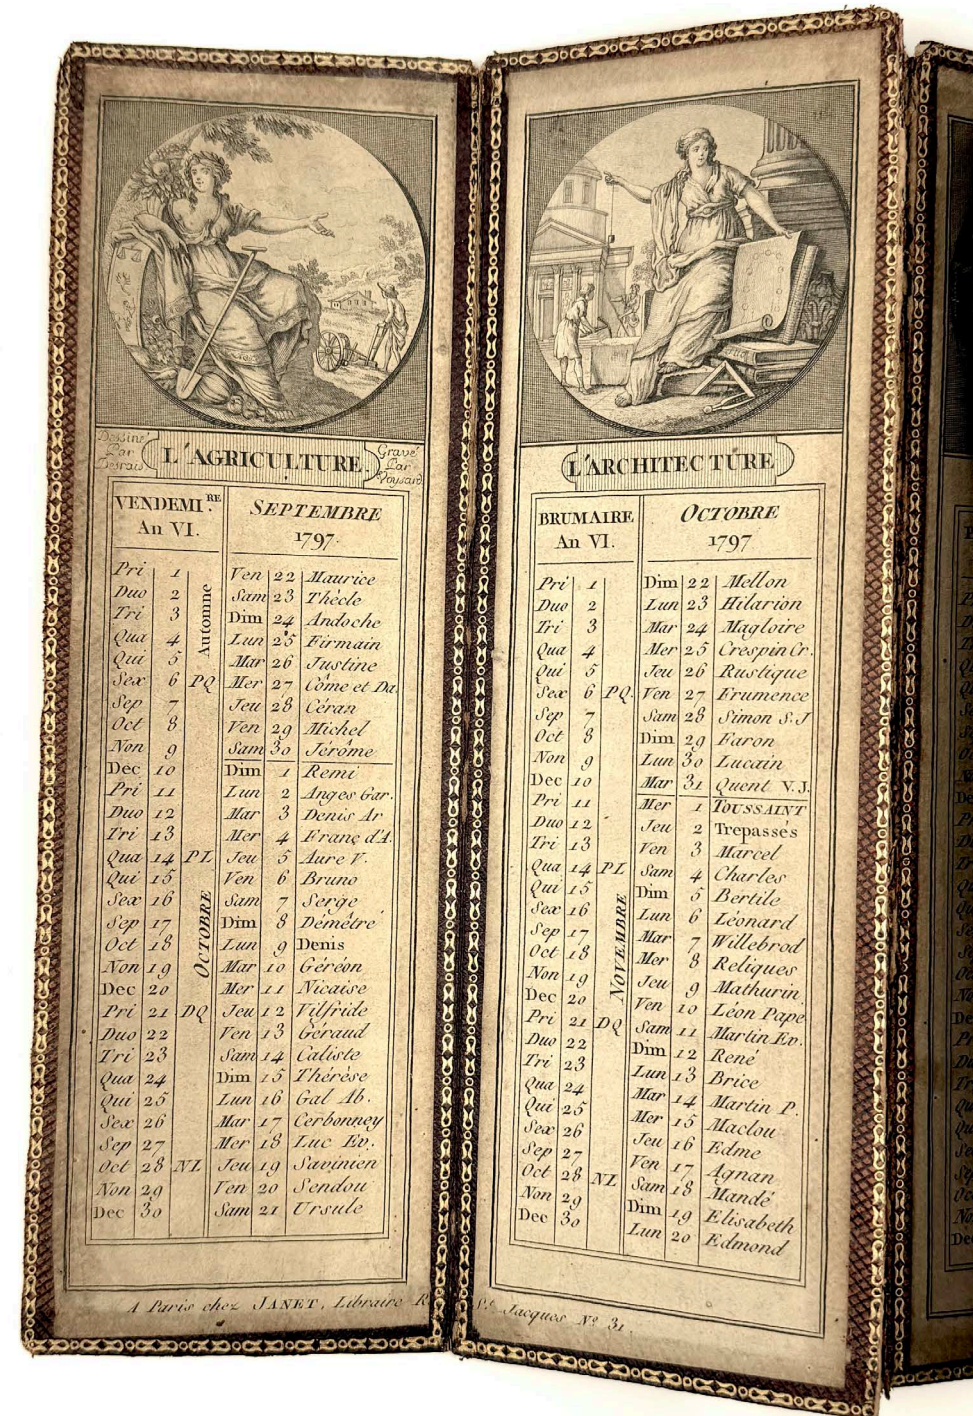 Dessiné
Par
Desrais
L'AGRICULTURE
Gravé
Par
Voysard
VENDEMI.RE SEPTEMBRE
An VI. 1797.
Automne
OCTOBRE
Pri 1 Ven 22 Maurice
Duo 2 Sam 23 Thécle
Tri 3 Dim 24 Andoche
Qua 4 Lun 25 Firmain
Qui 5 Mar 26 Justine
Sex 6 PQ Mer 27 Côme et Da.
Sep 7 Jeu 28 Céran
Oct 8 Ven 29 Michel
Non 9 Sam 30 Jérôme
Dec 10 Dim 1 Remi
Pri 11 Lun 2 Anges Gar.
Duo 12 Mar 3 Denis Ar
Tri 13 Mer 4 Franç d'A.
Qua 14 PL Jeu 5 Aure V.
Qui 15 Ven 6 Bruno
Sex 16 Sam 7 Serge
Sep 17 Dim 8 Démétre
Oct 18 Lun 9 Denis
Non 19 Mar 10 Géréon
Dec 20 Mer 11 Nicaise
Pri 21 DQ Jeu 12 Vilfride
Duo 22 Ven 13 Géraud
Tri 23 Sam 14 Caliste
Qua 24 Dim 15 Thérèse
Qui 25 Lun 16 Gal Ab.
Sex 26 Mar 17 Cerbonney
Sep 27 Mer 18 Luc Ev.
Oct 28 NL Jeu 19 Savinien
Non 29 Ven 20 Sendou
Dec 30 Sam 21 Ursule
L'ARCHITECTURE
BRUMAIRE OCTOBRE
An VI. 1797
NOVEMBRE
Pri 1 Dim 22 Mellon
Duo 2 Lun 23 Hilarion
Tri 3 Mar 24 Magloire
Qua 4 Mer 25 Crespin Cr.
Qui 5 Jeu 26 Rustique
Sex 6 PQ. Ven 27 Frumence
Sep 7 Sam 28 Simon S.J
Oct 8 Dim 29 Faron
Non 9 Lun 30 Lucain
Dec 10 Mar 31 Quent V.J.
Pri 11 Mer 1 TOUSSAINT
Duo 12 Jeu 2 Trepassés
Tri 13 Ven 3 Marcel
Qua 14 PL Sam 4 Charles
Qui 15 Dim 5 Bertile
Sex 16 Lun 6 Léonard
Sep 17 Mar 7 Willebrod
Oct 18 Mer 8 Reliques
Non 19 Jeu 9 Mathurin
Dec 20 Ven 10 Léon Pape
Pri 21 DQ Sam 11 Martin Ev.
Duo 22 Dim 12 René
Tri 23 Lun 13 Brice
Qua 24 Mar 14 Martin P.
Qui 25 Mer 15 Maclou
Sex 26 Jeu 16 Edme
Sep 27 Ven 17 Agnan
Oct 28 NL Sam 18 Mandé
Non 29 Dim 19 Elisabeth
Dec 30 Lun 20 Edmond
A Paris chez JANET, Libraire R. St. Jacques No. 31.